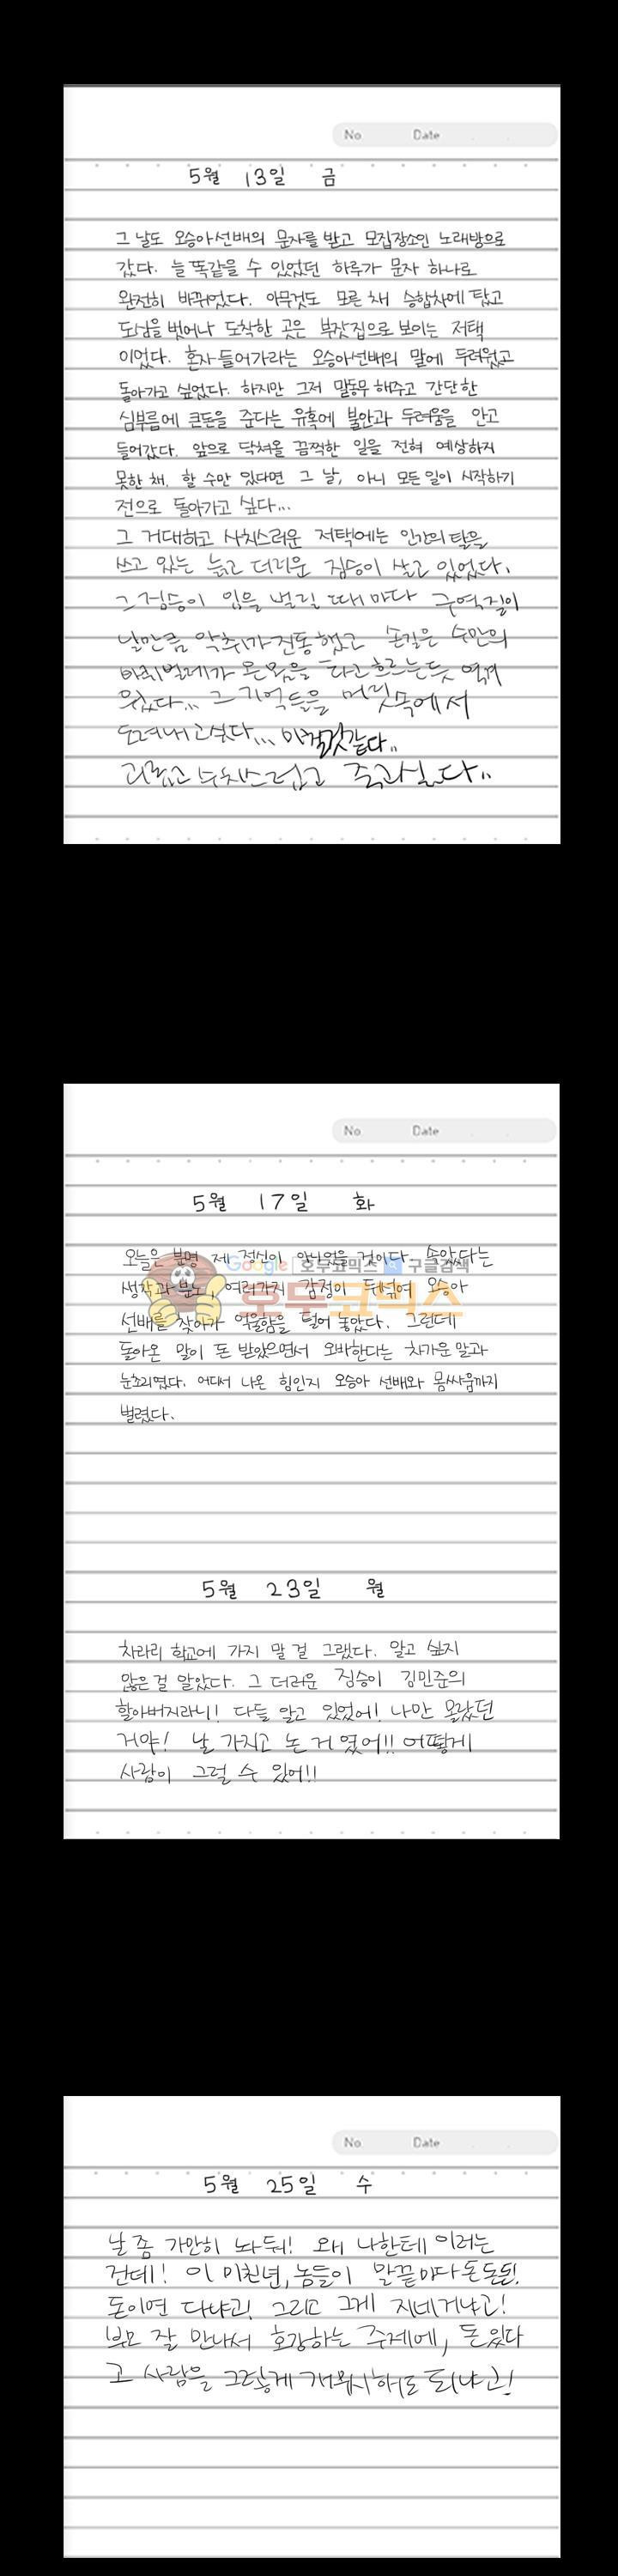 No Date
5월 13일 금
그 날도 오승아선배의 문자를 받고 모집장소인 노래방으로
갔다. 늘 똑같을 수 있었던 하루가 문자 하나로
완전히 바뀌었다. 아무것도 모른 채 승합차에 탔고
도심을 벗어나 도착한 곳은 부잣집으로 보이는 저택
이었다. 혼자 들어가라는 오승아선배의 말에 두려웠고
돌아가고 싶었다. 하지만 그저 말동무 해주고 간단한
심부름에 큰돈을 준다는 유혹에 불안과 두려움을 안고
들어갔다. 앞으로 닥쳐올 끔찍한 일을 전혀 예상하지
못한 채. 할 수만 있다면 그 날, 아니 모든 일이 시작하기
전으로 돌아가고 싶다...
그 거대하고 사치스러운 저택에는 인간의 탈을
쓰고 있는 늙고 더러운 짐승이 살고 있었다.
그 짐승이 입을 벌릴 때 마다 구역질이
날만큼 악취가 진동했고 손길은 수만의
바퀴벌레가 온몸을 타고 흐르는듯 역겨
웠다... 그 기억들을 머릿속에서
도려내고싶다... 미칠것같다..
괴롭고 수치스럽고 죽고싶다..
No Date
5월 17일 화
오늘은 분명 제 정신이 아니었을 것이다. 속았다는
생각과 분노, 여러가지 감정이 뒤섞여 오승아
선배를 찾아가 억울함을 털어 놓았다. 그런데
돌아온 말이 돈 받았으면서 오바한다는 차가운 말과
눈초리였다. 어디서 나온 힘인지 오승아 선배와 몸싸움까지
벌렸다.
Google 호두코믹스 구글검색
호두코믹스
5월 23일 월
차라리 학교에 가지 말 걸 그랬다. 알고 싶지
않은 걸 알았다. 그 더러운 짐승이 김민준의
할아버지라니! 다들 알고 있었어! 나만 몰랐던
거야! 날 가지고 논 거 였어!! 어떻게
사람이 그럴 수 있어!!
No Date
5월 25일 수
날 좀 가만히 놔둬! 왜 나한테 이러는
건데! 이 미친년, 놈들이 말끝마다 돈돈돈!
돈이면 다냐고! 그리고 그게 지네거냐고!
부모 잘 만나서 호강하는 주제에, 돈있다
고 사람을 그렇게 개무시해도 되냐고!